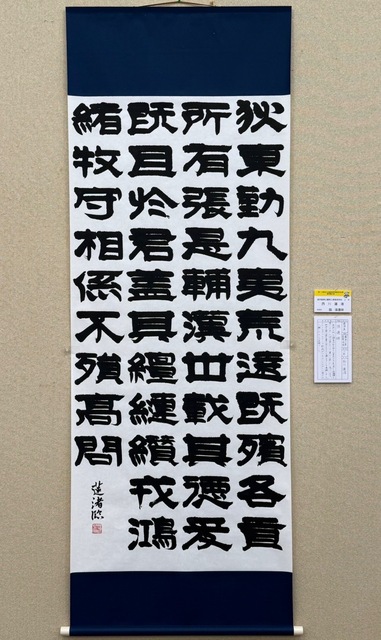 狄東勤九夷荒遠既殯各貢
所有張是輔漢世載其德爰
既且於君蓋其繵縺纘戎鴻
緒牧守相係不殞高問
蓮渚臨